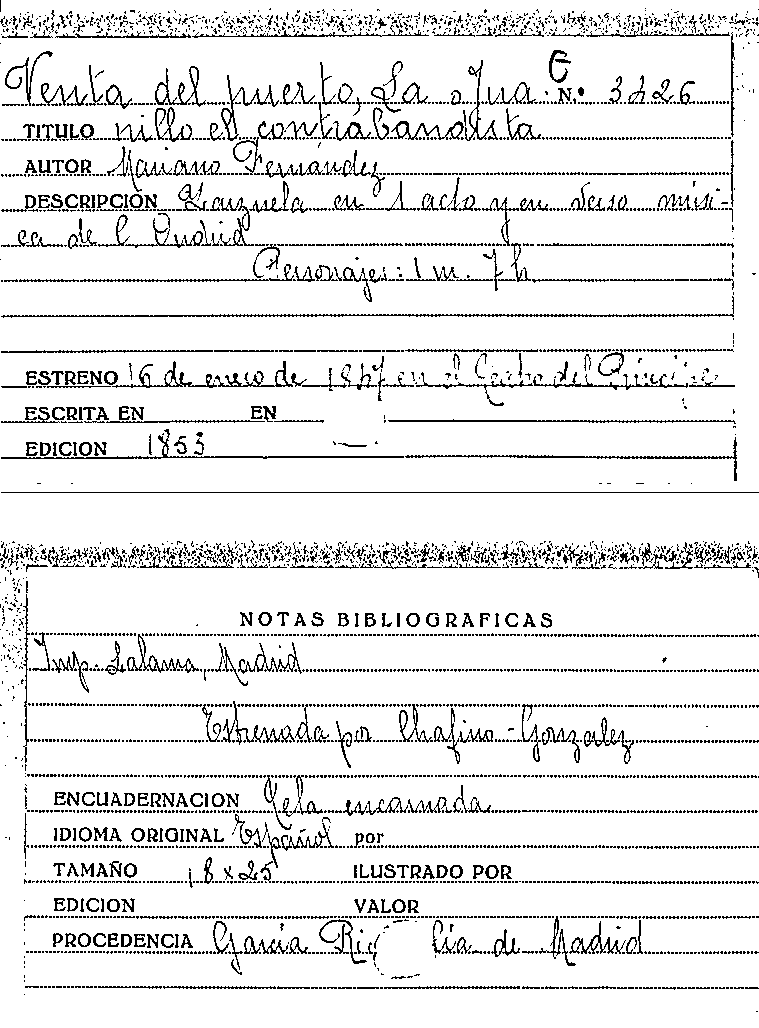 Venta del puerto, La o Jua- C N.º 3426
TITULO nillo el contrabandista
AUTOR Mariano Fernández
DESCRIPCIÓN Zarzuela en 1 acto y en verso músi-
ca de C. Oudrid
Personajes: 1 m. 7 h.
ESTRENO 16 de enero de 1847 en el Teatro del Príncipe
ESCRITA EN EN
EDICION 1853
NOTAS BIBLIOGRAFICAS
Imp. Lalama, Madrid
Estrenada por Chafino-Gonzalez
ENCUADERNACION Tela encarnada
IDIOMA ORIGINAL Español por
TAMAÑO 18 x 25 ILUSTRADO POR
EDICION VALOR
PROCEDENCIA García Rico Cía de Madrid